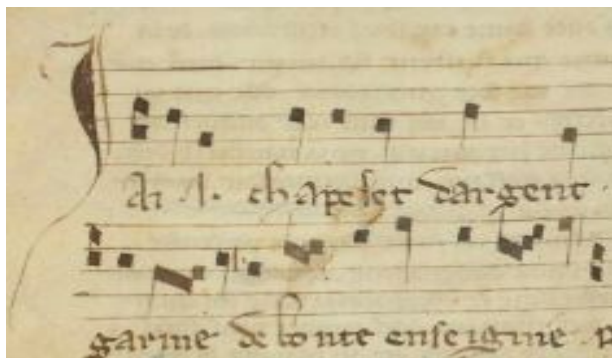 Jai .i. chapelet dargent
garnie de bonte enseignie